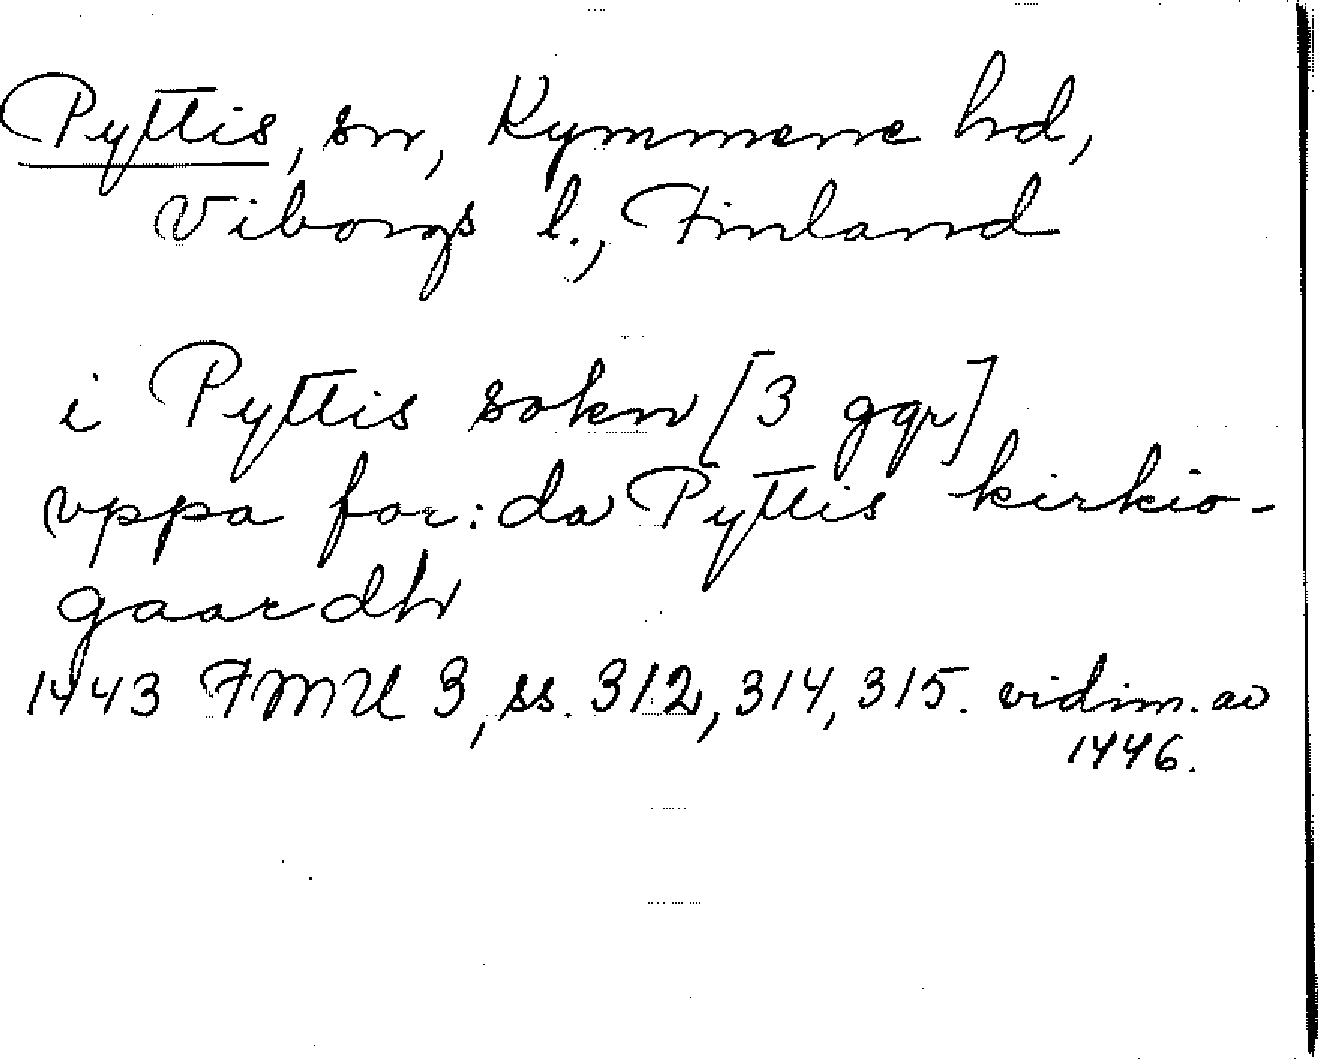 Pyttis, sn, Kymmene hd,
Viborgs l., Finland
i Pyttis sokn [3 ggr]
vppa for:da Pyttis kirkio-
gaardh
1443 FMU 3, ss. 312, 314, 315. vidim. av
1446.